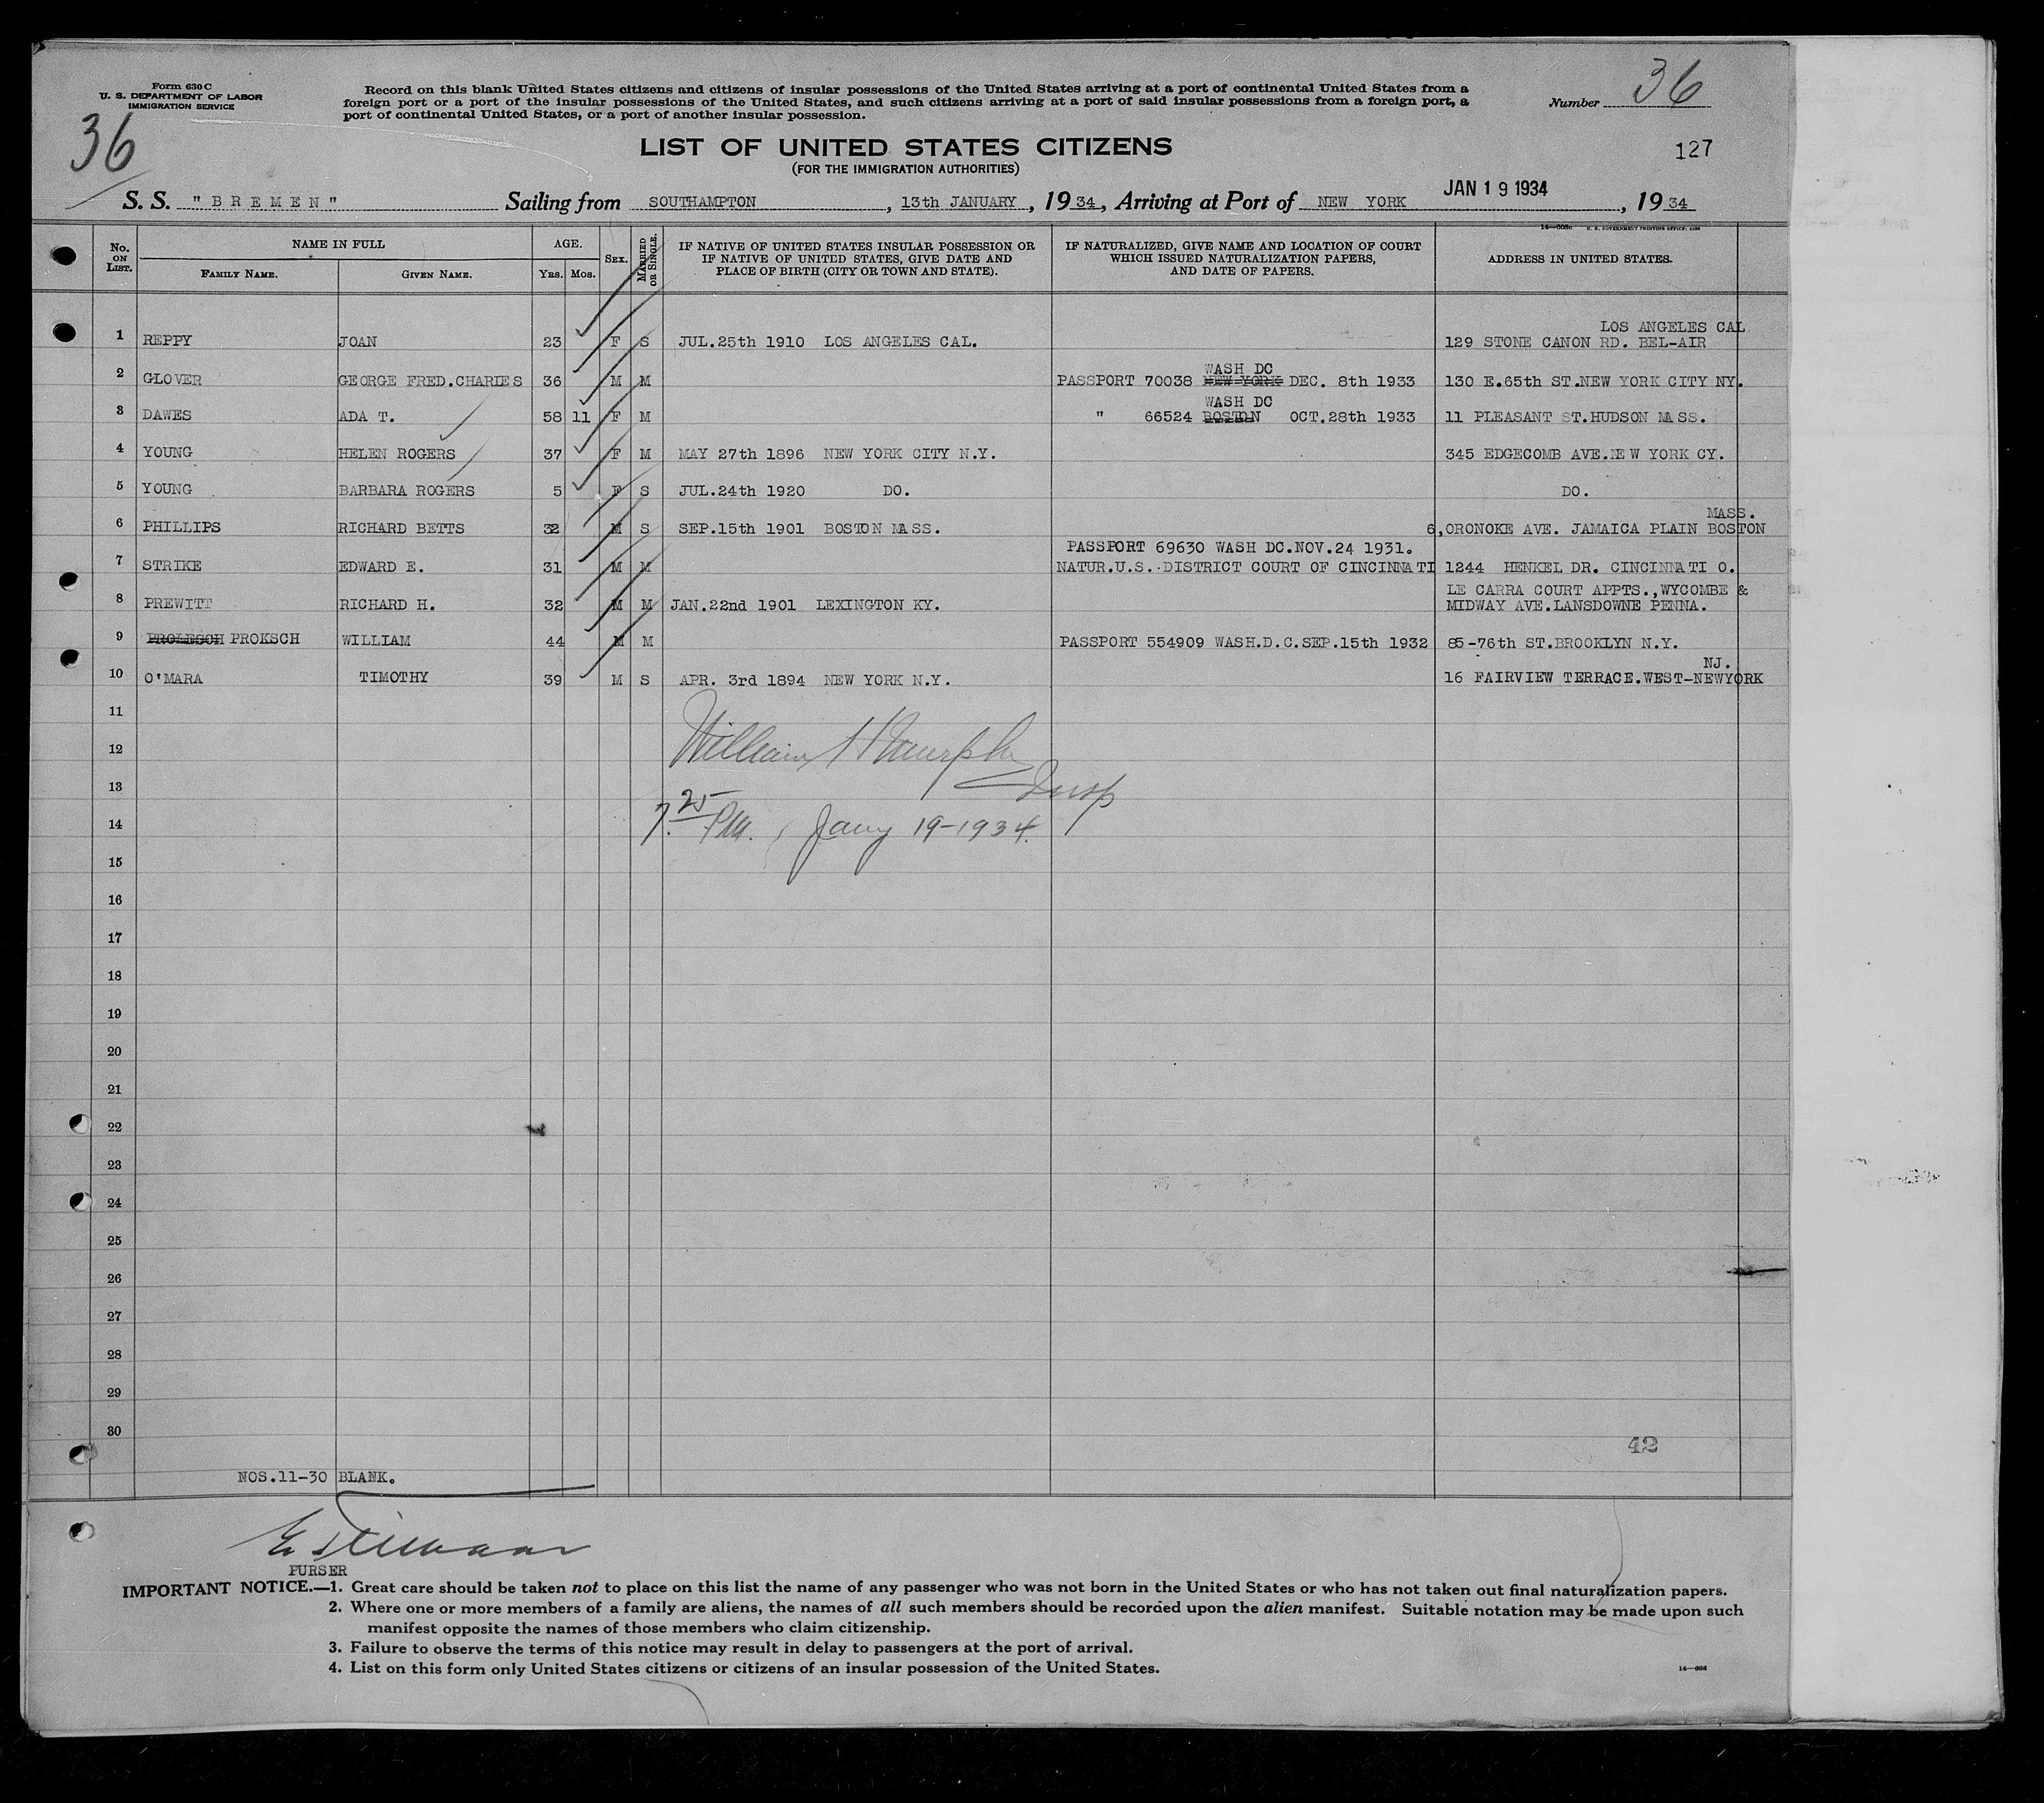 Form 630 C
U. S. DEPARTMENT OF LABOR
IMMIGRATION SERVICE
Record on this blank United States citizens and citizens of insular possessions of the United States arriving at a port of continental United States from a
foreign port or a port of the insular possessions of the United States, and such citizens arriving at a port of said insular possessions from a foreign port, a
port of continental United States, or a port of another insular possession.
Number 36
36
LIST OF UNITED STATES CITIZENS
(FOR THE IMMIGRATION AUTHORITIES)
127
S. S. "BREMEN" Sailing from SOUTHAMPTON, 13th JANUARY, 1934, Arriving at Port of NEW YORK JAN 19 1934, 1934
No. ON LIST. NAME IN FULL FAMILY NAME. GIVEN NAME. AGE. YRS. MOS. SEX. MARRIED OR SINGLE. IF NATIVE OF UNITED STATES INSULAR POSSESSION OR IF NATIVE OF UNITED STATES, GIVE DATE AND PLACE OF BIRTH (CITY OR TOWN AND STATE). IF NATURALIZED, GIVE NAME AND LOCATION OF COURT WHICH ISSUED NATURALIZATION PAPERS, AND DATE OF PAPERS. ADDRESS IN UNITED STATES.
LOS ANGELES CAL
1 REPPY JOAN 23 F S JUL.25th 1910 LOS ANGELES CAL. 129 STONE CANON RD. BEL-AIR
WASH DC
2 GLOVER GEORGE FRED.CHARLES 36 M M PASSPORT 70038 NEW YORK DEC. 8th 1933 130 E.65th ST.NEW YORK CITY NY.
WASH DC
3 DAWES ADA T. 58 11 F M " 66524 BOSTON OCT.28th 1933 11 PLEASANT ST.HUDSON MASS.
4 YOUNG HELEN ROGERS 37 F M MAY 27th 1896 NEW YORK CITY N.Y. 345 EDGECOMB AVE.NEW YORK CY.
5 YOUNG BARBARA ROGERS 5 F S JUL.24th 1920 DO. DO.
MASS.
6 PHILLIPS RICHARD BETTS 32 M S SEP.15th 1901 BOSTON MASS. 6,ORONOKE AVE. JAMAICA PLAIN BOSTON
PASSPORT 69630 WASH DC.NOV.24 1931.
7 STRIKE EDWARD E. 31 M M NATUR.U.S. DISTRICT COURT OF CINCINNATI 1244 HENKEL DR. CINCINNATI O.
LE CARRA COURT APPTS.,WYCOMBE &
8 PREWITT RICHARD H. 32 M M JAN.22nd 1901 LEXINGTON KY. MIDWAY AVE.LANSDOWNE PENNA.
9 PROKSCH WILLIAM 44 M M PASSPORT 554909 WASH.D.C.SEP.15th 1932 85-76th ST.BROOKLYN N.Y.
NJ.
10 O'MARA TIMOTHY 39 M S APR. 3rd 1894 NEW YORK N.Y. 16 FAIRVIEW TERRACE.WEST-NEWYORK
11
12 William H Murphy
13 Insp
14 7.25 P.M., Jany 19-1934.
15
16
17
18
19
20
21
22
23
24
25
26
27
28
29
30
42
NOS.11-30 BLANK.
PURSER
IMPORTANT NOTICE.—1. Great care should be taken not to place on this list the name of any passenger who was not born in the United States or who has not taken out final naturalization papers.
2. Where one or more members of a family are aliens, the names of all such members should be recorded upon the alien manifest. Suitable notation may be made upon such
manifest opposite the names of those members who claim citizenship.
3. Failure to observe the terms of this notice may result in delay to passengers at the port of arrival.
4. List on this form only United States citizens or citizens of an insular possession of the United States.